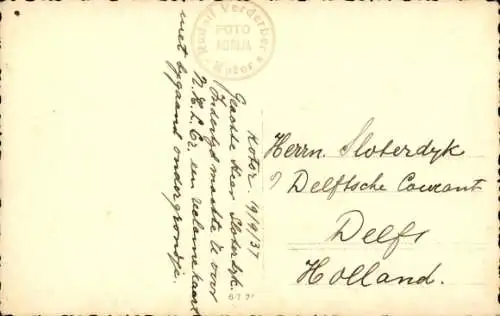 Rudolf Verderber
FOTO
ADRIJA
Kotor
Kotor 19/9/37
Geachte Heer Sloterdyk.
Ondertyd maakte U voor
N.H.L.Cr. een reclame kaart
met bygaand ondergrondje.
Herrn. Sloterdyk
Delftsche Courant
Delft
Holland.